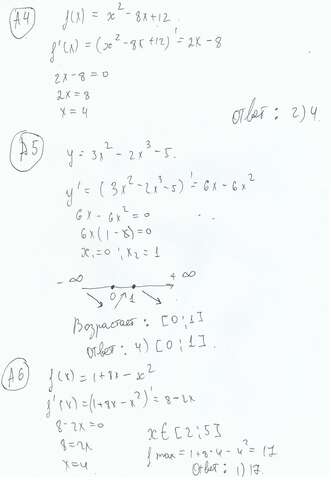 А4
f(x) = x² - 8x + 12
f'(x) = (x² - 8x + 12)' = 2x - 8
2x - 8 = 0
2x = 8
x = 4
Ответ: 2) 4.
А5
y = 3x² - 2x³ - 5.
y' = (3x² - 2x³ - 5)' = 6x - 6x²
6x - 6x² = 0
6x(1 - x) = 0
x₁ = 0; x₂ = 1
-∞ +∞
0 1
Возрастает: [0; 1]
Ответ: 4) [0; 1].
А6
f(x) = 1 + 8x - x²
f'(x) = (1 + 8x - x²)' = 8 - 2x
8 - 2x = 0
8 = 2x
x = 4
x ∈ [2; 5]
f max = 1 + 8·4 - 4² = 17
Ответ: 1) 17.